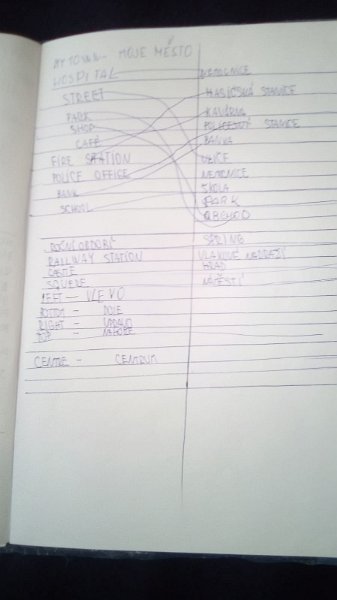 MY TOWN - MOJE MĚSTO
HOSPITAL NEMOCNICE
STREET HASIČSKÁ STANICE
PARK KAVÁRNA
SHOP POLICEJNÍ STANICE
CAFÉ BANKA
FIRE STATION ULICE
POLICE OFFICE NEMOCNICE
BANK ŠKOLA
SCHOOL PARK
OBCHOD
ROČNÍ OBDOBÍ SPRING
RAILWAY STATION VLAKOVÉ NÁDRAŽÍ
CASTLE HRAD
SQUERE NÁMĚSTÍ
LEFT - VLEVO
BOTTOM - DOLE
RIGHT - VPRAVO
TOP - NAHOŘE
CENTRE - CENTRUM